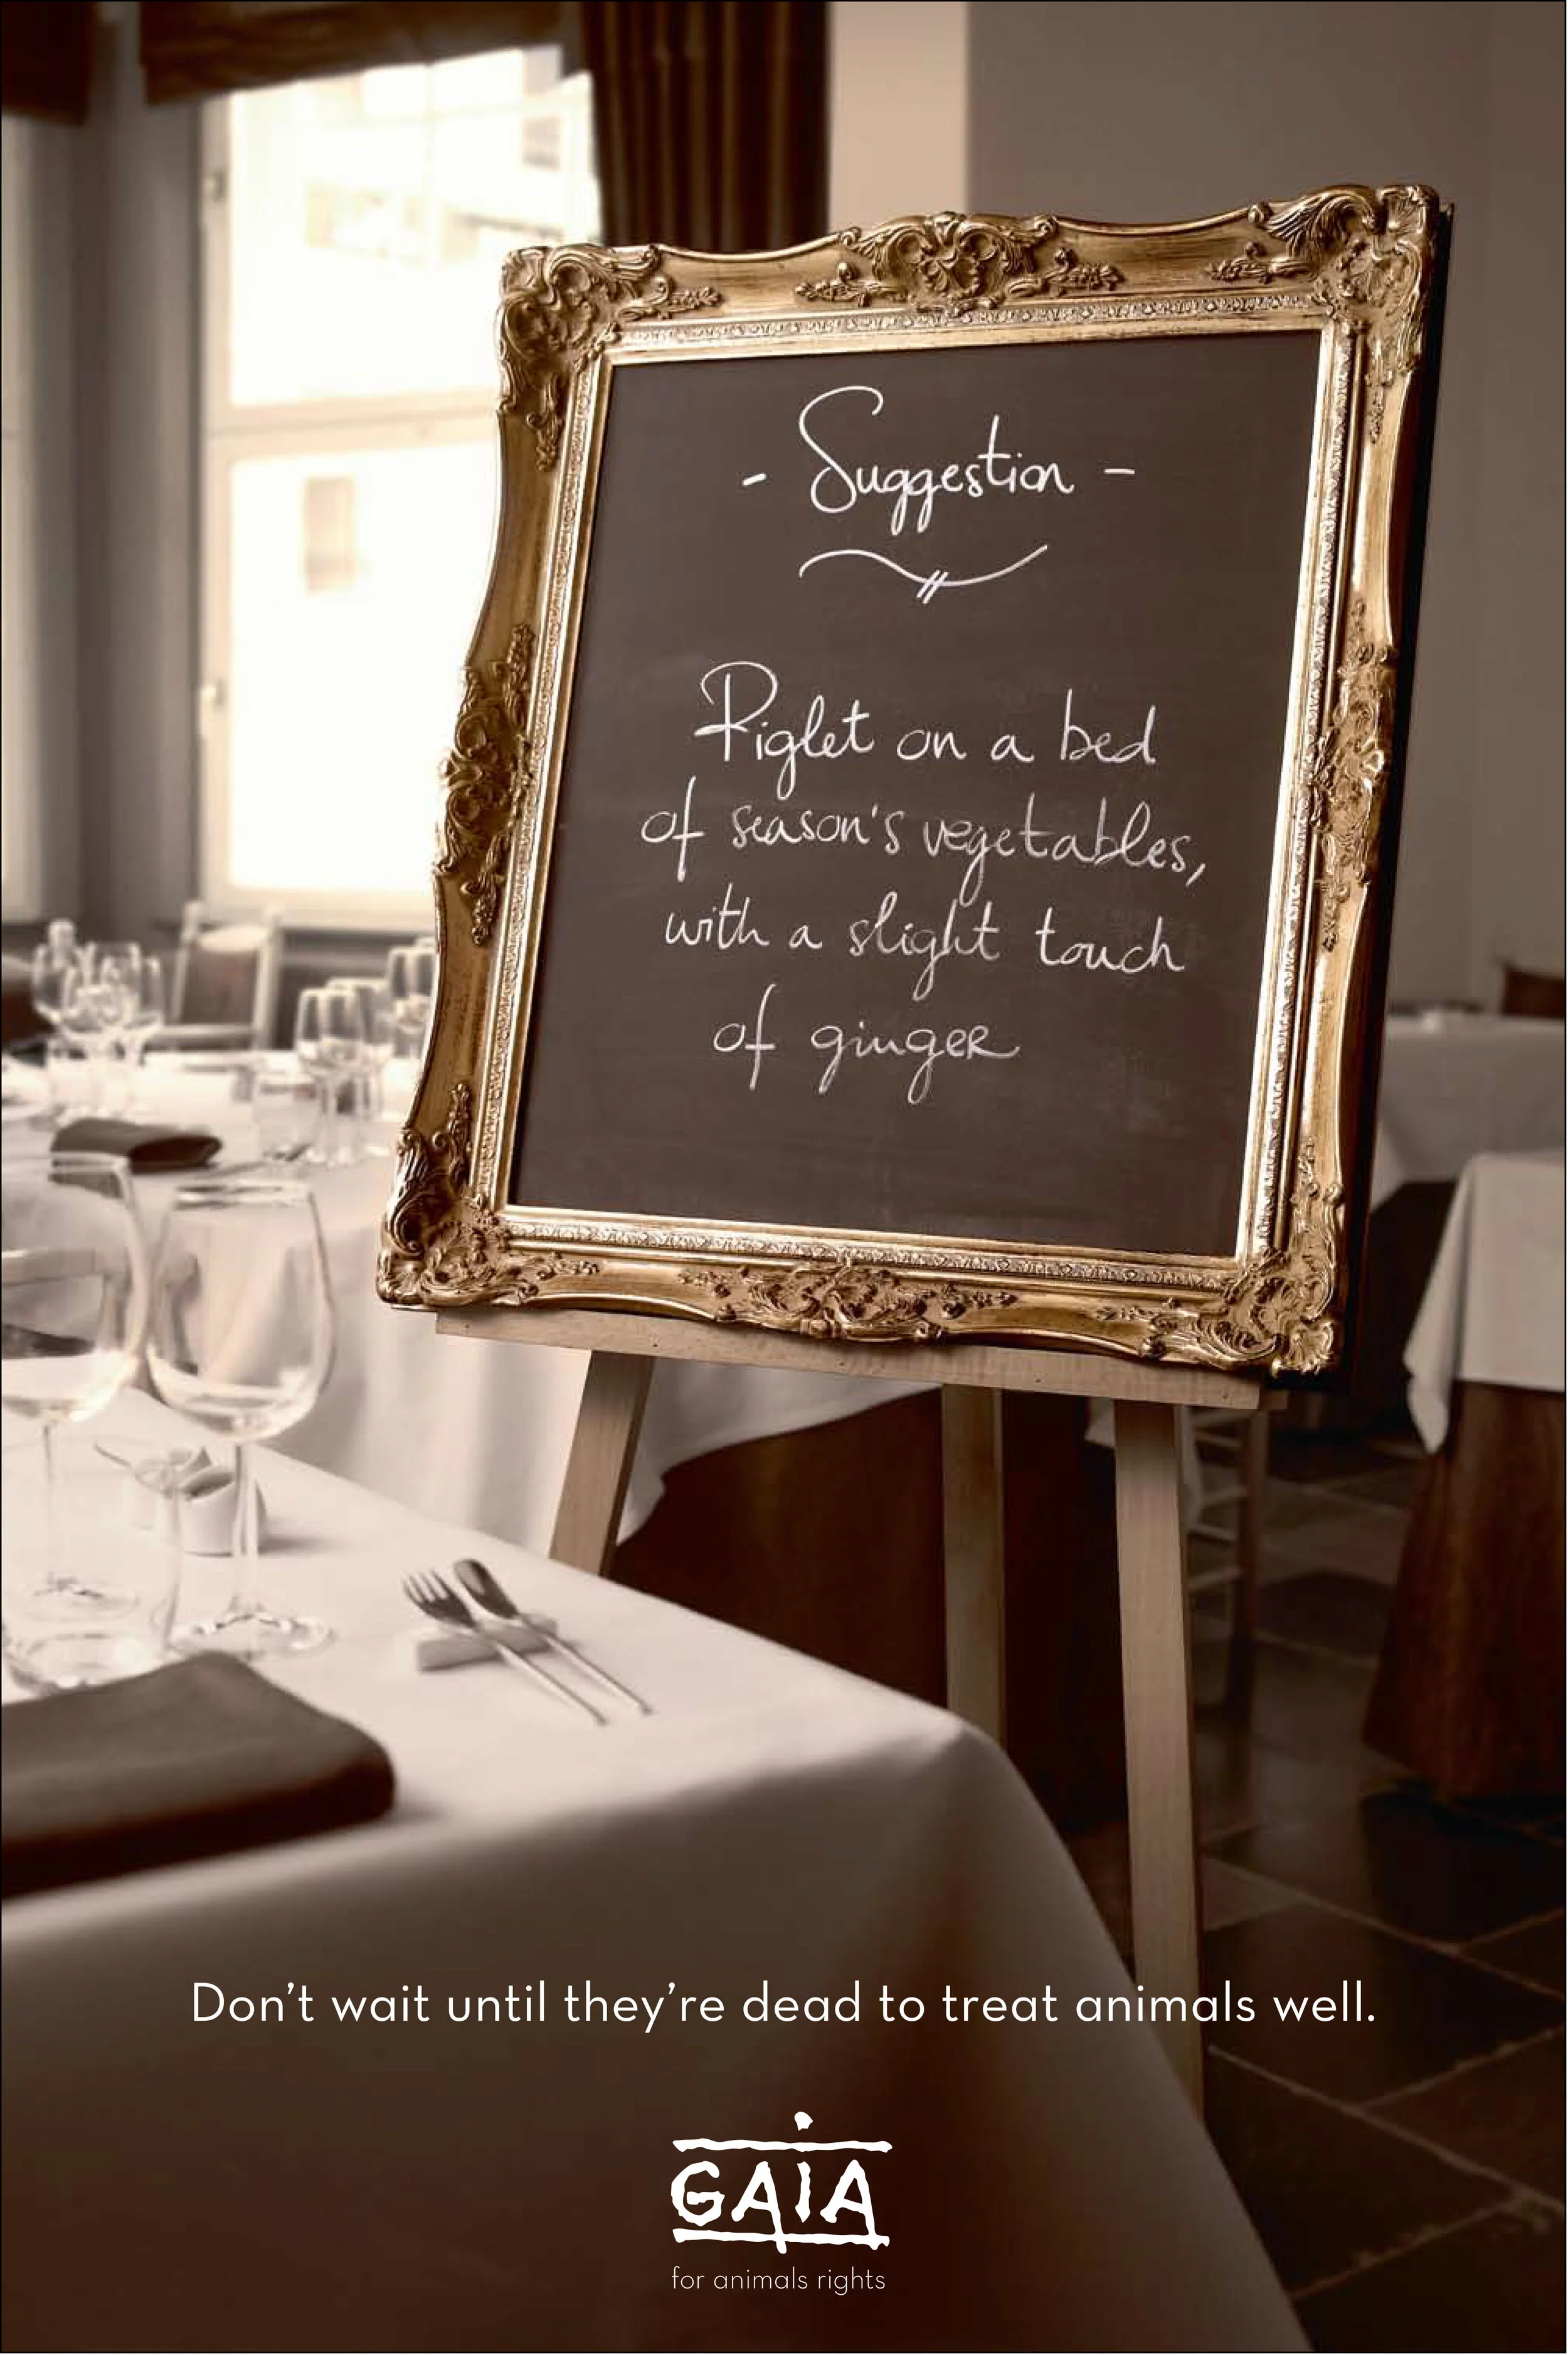 - Suggestion -
Piglet on a bed
of season's vegetables,
with a slight touch
of ginger
Don't wait until they're dead to treat animals well.
GAIA
for animals rights